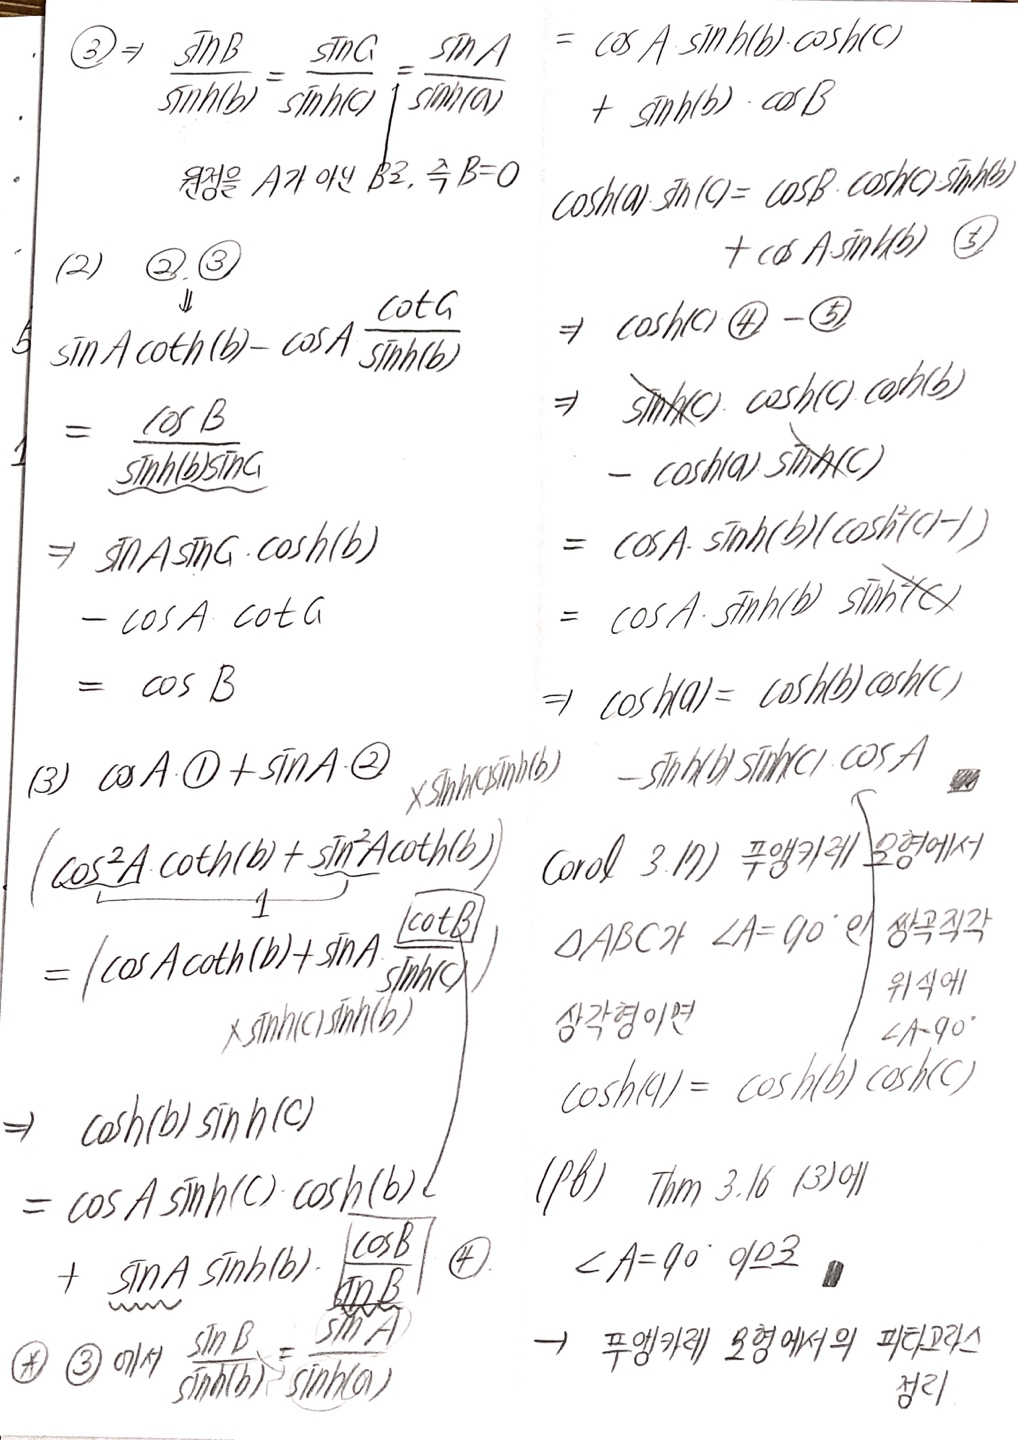 ③ ⇒ sinB/sinh(b) = sinC/sinh(c) = sinA/sinh(a)
원점을 A가 아닌 B로, 즉 B=0
(2) ②, ③
⇓
sinA coth(b) - cosA cotC/sinh(b)
= cosB/sinh(b)sinC
⇒ sinA sinC · cosh(b)
- cosA · cotC
= cosB
(3) cosA·① + sinA·②
×sinh(c)sinh(b)
(cos²A·coth(b) + sin²A coth(b))
1
= (cosA coth(b) + sinA cotB/sinh(c))
×sinh(c)sinh(b)
⇒ cosh(b) sinh(c)
= cosA sinh(c)·cosh(b)
+ sinA sinh(b)· cosB/sinB ④
※ ③에서 sinB/sinh(b) = sinA/sinh(a)
= cosA·sinh(b)·cosh(c)
+ sinh(b)·cosB
cosh(a)·sin(c) = cosB·cosh(c)·sinh(b)
+ cosA sinh(b) ⑤
⇒ cosh(c)④ - ⑤
⇒ sinh(c)·cosh(c)·cosh(b)
- cosh(a)·sinh(c)
= cosA·sinh(b)(cosh²(c)-1)
= cosA·sinh(b) sinh²(c)
⇒ cosh(a) = cosh(b)cosh(c)
- sinh(b)sinh(c)·cosA
Corol 3.17) 푸앵카레 모형에서
△ABC가 ∠A=90°인 쌍곡직각
삼각형이면
위 식에
∠A=90°
cosh(a) = cosh(b) cosh(c)
(pf) Thm 3.16 (3)에
∠A=90° 이므로
→ 푸앵카레 모형에서의 피타고라스
정리